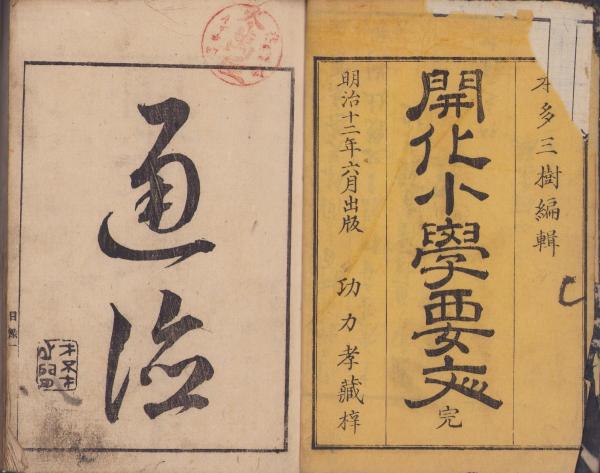 本多三樹編輯
開化小學要文 完
明治十二年六月出版
功力孝藏梓
通